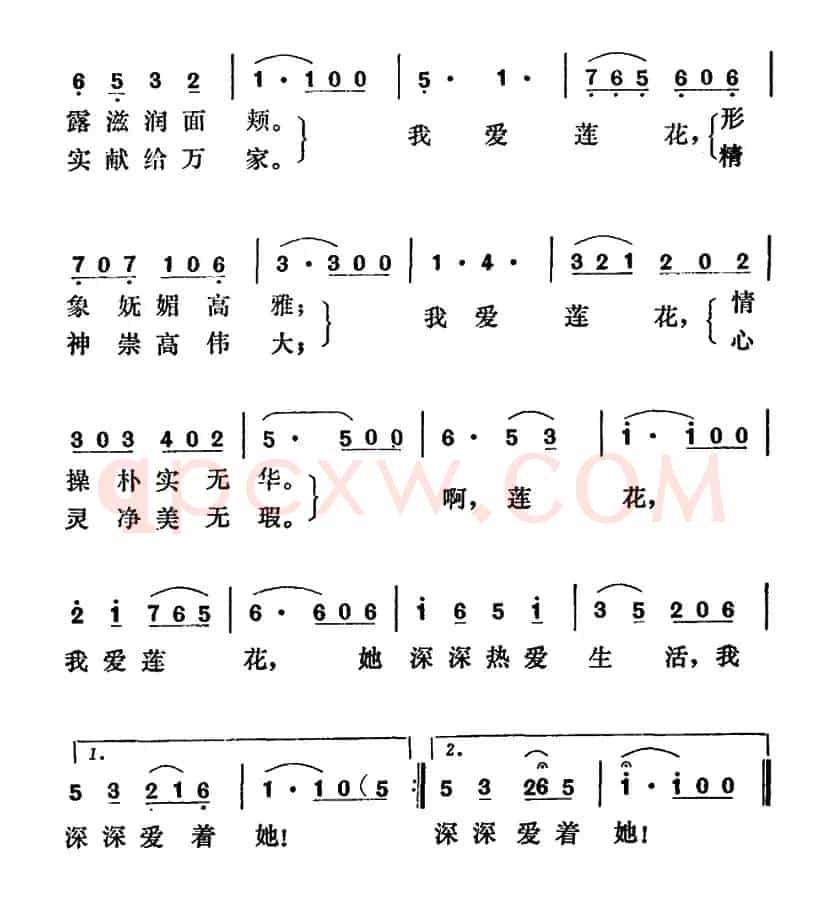 6 5 3 2 | 1 · 1 0 0 | 5 · 1 · | 7 6 5 6 0 6 |
露滋润面 颊。 我 爱 莲 花, 形
实献给万 家。 精
7 0 7 1 0 6 | 3 · 3 0 0 | 1 · 4 · | 3 2 1 2 0 2 |
象妩媚高 雅; 我 爱 莲 花, 情
神崇高伟 大; 心
3 0 3 4 0 2 | 5 · 5 0 0 | 6 · 5 3 | 1 · 1 0 0 |
操朴实无 华。 啊, 莲 花,
灵净美无 瑕。
qpcxw.COM
2 1 7 6 5 | 6 · 6 0 6 | 1 6 5 1 | 3 5 2 0 6 |
我爱莲 花, 她 深深热爱 生 活, 我
1. 2.
5 3 2 1 6 | 1 · 1 0 ( 5 :‖ 5 3 2 6 5 | 1 · 1 0 0 ‖
深深爱着 她! 深深爱着 她!